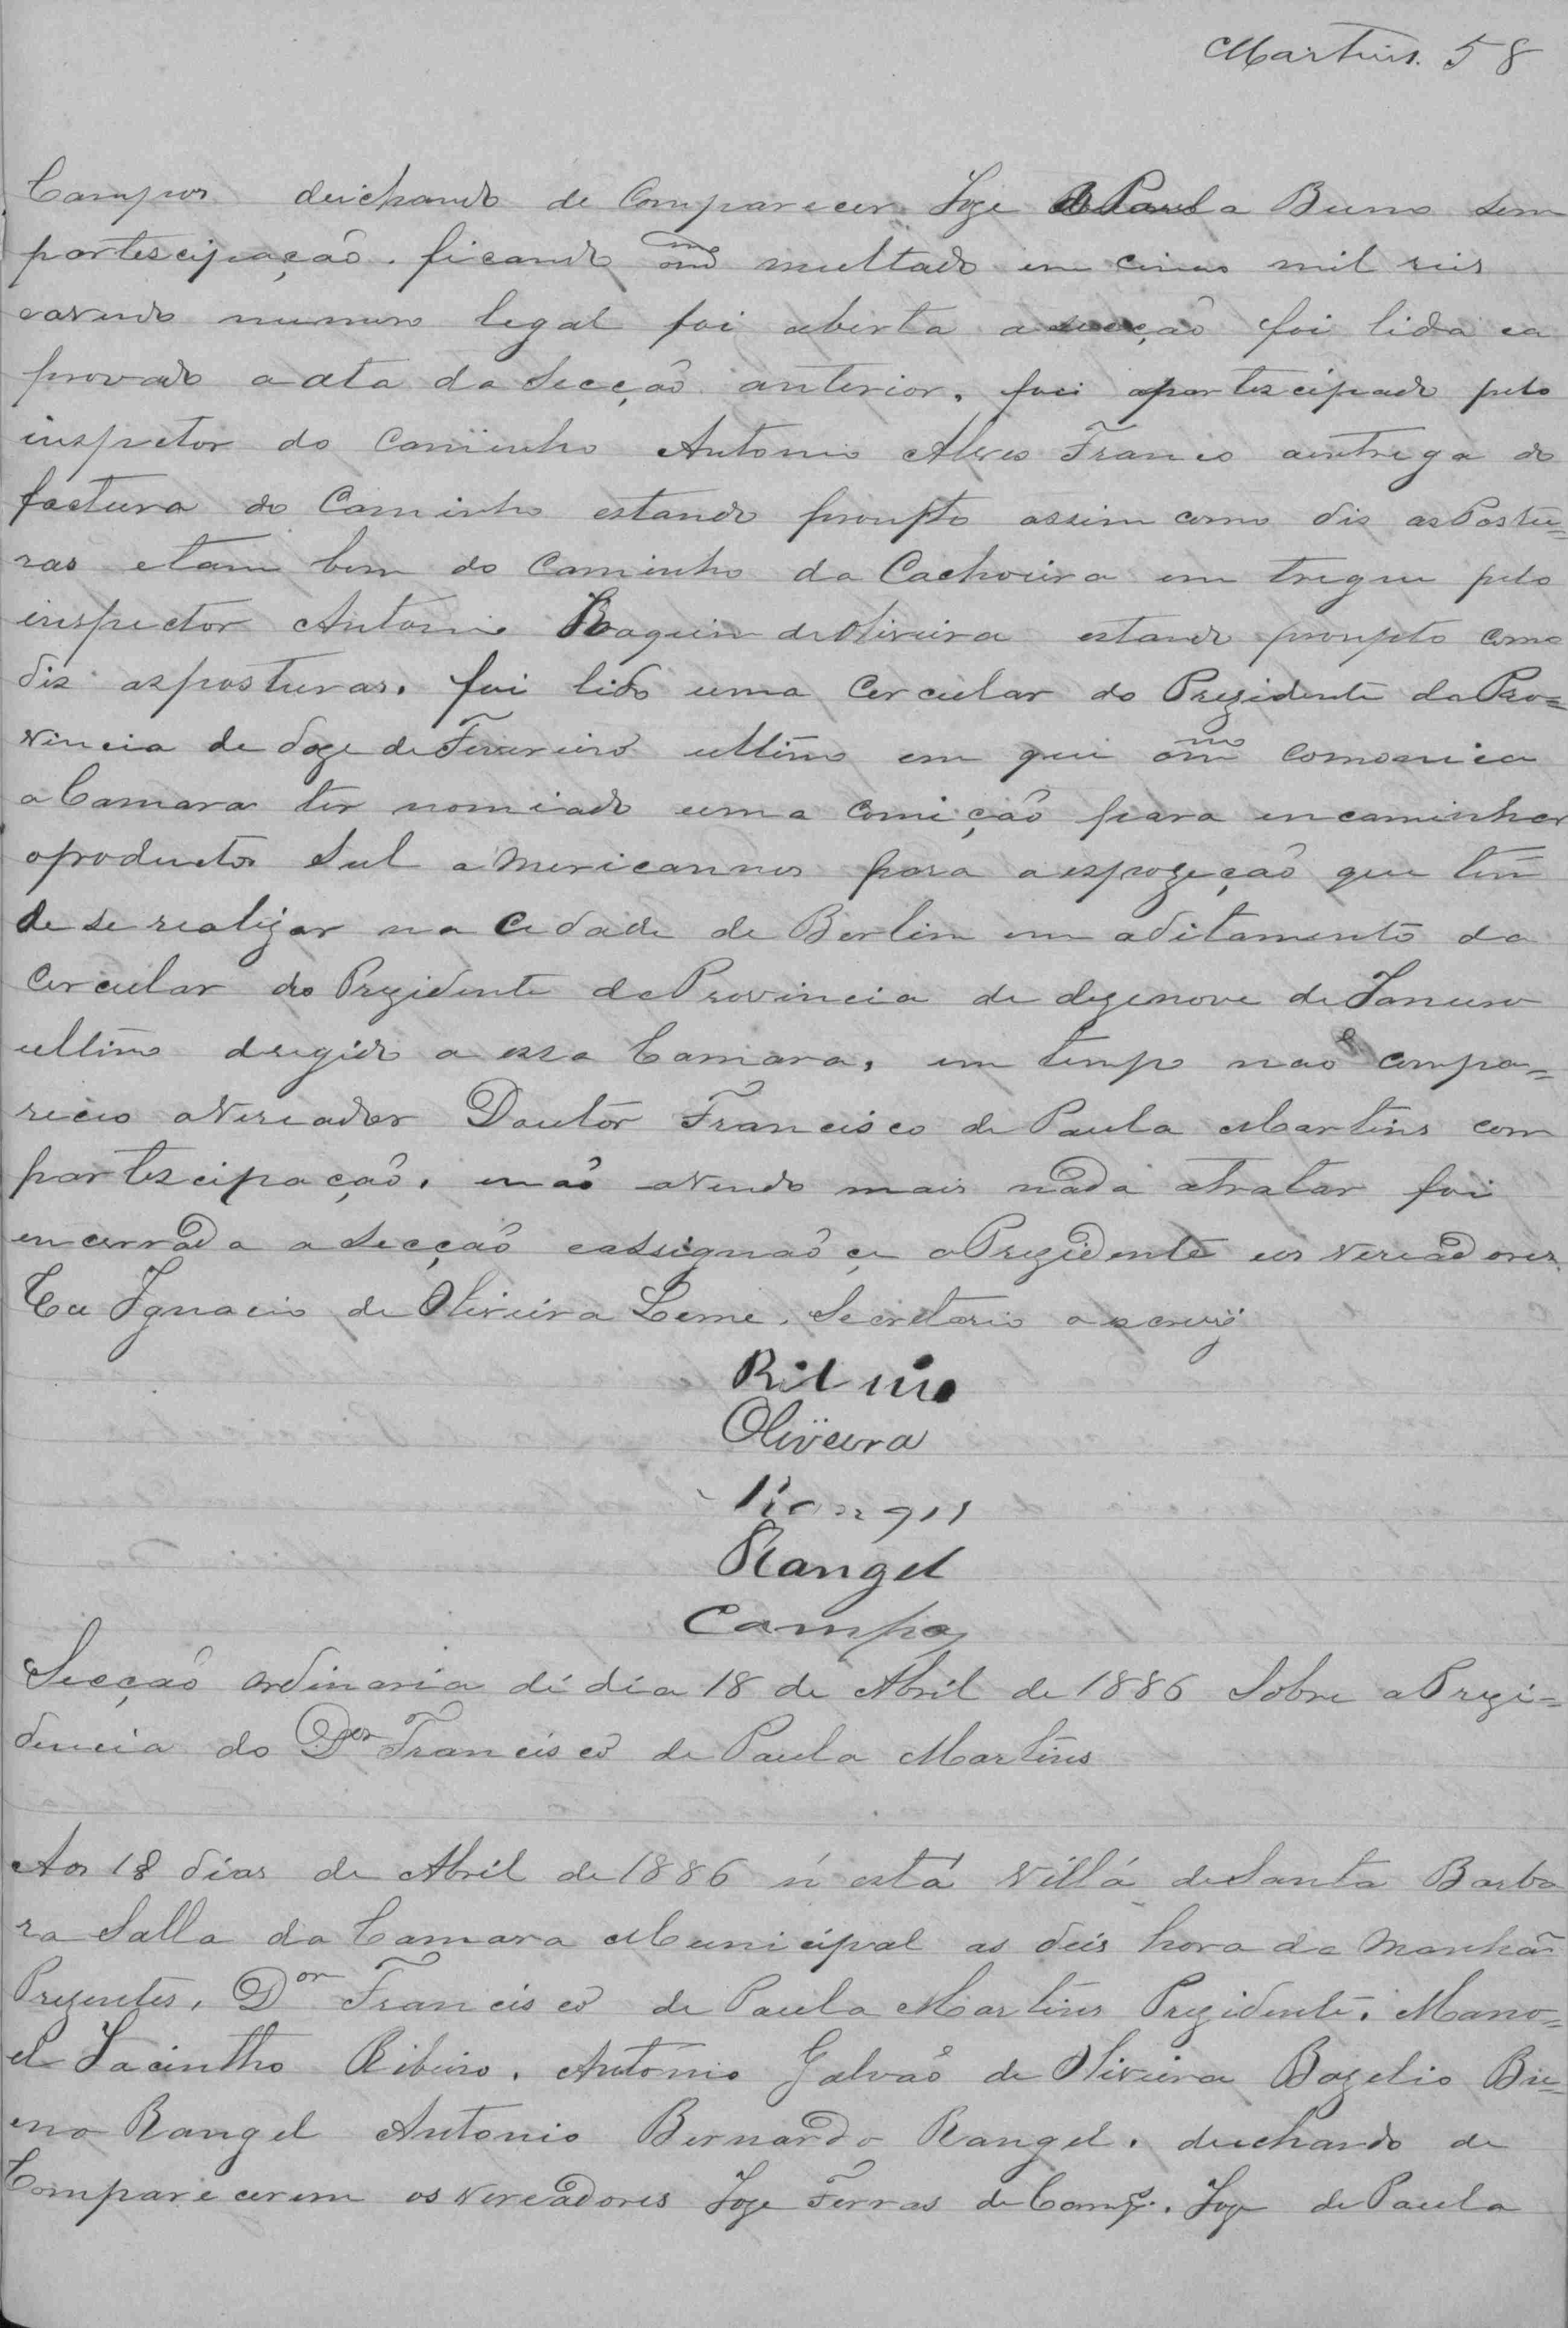 Martins. 58
Campos deichando de Comparecer Joze de Paula Bueno sem
partescipação. ficando o mmo multado em cinco mil reis
eavendo numero legal foi aberta a secção foi lida ea
provado a ata da Secção anterior. foi apartescipado pelo
inspetor do Caminho Antonio Alves Franco aintrega do
factura do Caminho estando prompto assim como dis as Postu=
ras etam bem do Caminho da Cachoeira em tregue pelo
inspector Antonio Joaquim de Oliveira estando prompto como
dis asposturas. foi lido uma Cercular do Prezidente da Pro=
vincia de doze de Fevereiro ultimo em que o mmo comonica
a Camara ter nomiado uma Comição para encaminhar
oproductos Sul americannos para a espozeção que tem
de se realizar na Cidade de Berlim em aditamento da
Cercular do Prezidente da Provincia de dezenove de Janeiro
ultimo deregido a essa Camara, em tempo nao compa=
receo o Vereador Doutor Francisco de Paula Martins com
partescipação. enão avendo mais nada atratar foi
encerrada a Secção eassignaõ ce o Prezidente eos vereadores.
Eu Ignacio de Oliveira Leme. Secretario o escrevi
Ribeiro
Oliveira
Rangel
Rangel
Campos
Secção Ordinaria dé dia 18 de Abril de 1886 Sobre a Prezi=
dencia do Dor Francisco de Paula Martins
Aos 18 dias de Abril de 1886 n'esta Villa de Santa Barba
ra Salla da Camara Municipal as deis hora da Manhã
Prezentes, Dor Francisco de Paula Martins Prezidente. Mano=
el Jacintho Ribeiro. Antonio Galvaõ de Oliveira Bazelio Bu=
eno Rangel Antonio Bernardo Rangel. deichando de
Comparecerem os vereadores Joze Ferras de Camps. Joze de Paula